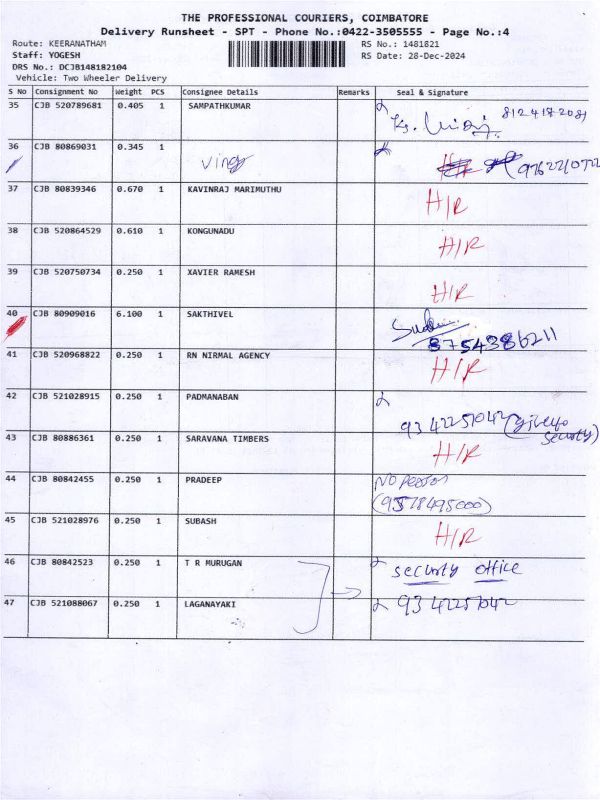 THE PROFESSIONAL COURIERS, COIMBATORE
Delivery Runsheet - SPT - Phone No.:0422-3505555 - Page No.:4
Route: KEERANATHAM RS No.: 1481821
Staff: YOGESH RS Date: 28-Dec-2024
DRS No.: DCJB148182104
Vehicle: Two Wheeler Delivery
S No Consignment No Weight PCS Consignee Details Remarks Seal & Signature
35 CJB 520789681 0.405 1 SAMPATHKUMAR 8124172081
36 CJB 80869031 0.345 1
37 CJB 80839346 0.670 1 KAVINRAJ MARIMUTHU H/R
38 CJB 520864529 0.610 1 KONGUNADU H/R
39 CJB 520750734 0.250 1 XAVIER RAMESH H/R
40 CJB 80909016 6.100 1 SAKTHIVEL 8754386211
41 CJB 520968822 0.250 1 RN NIRMAL AGENCY H/R
42 CJB 521028915 0.250 1 PADMANABAN 9342251042 security)
43 CJB 80886361 0.250 1 SARAVANA TIMBERS H/R
44 CJB 80842455 0.250 1 PRADEEP No person
(9578495000)
45 CJB 521028976 0.250 1 SUBASH H/R
46 CJB 80842523 0.250 1 T R MURUGAN security office
47 CJB 521088067 0.250 1 LAGANAYAKI 9342251042